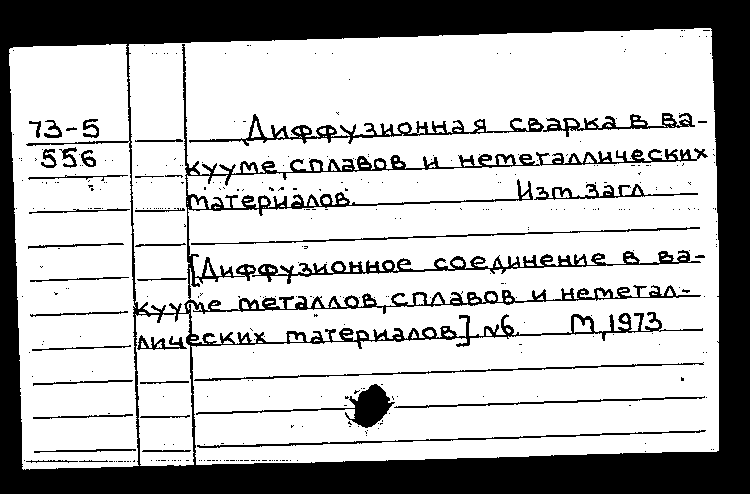 73-5
556
Диффузионная сварка в ва-
кууме, сплавов и неметаллических
материалов. Изм. загл
[Диффузионное соединение в ва-
кууме металлов, сплавов и неметал-
лических материалов] №6 М, 1973